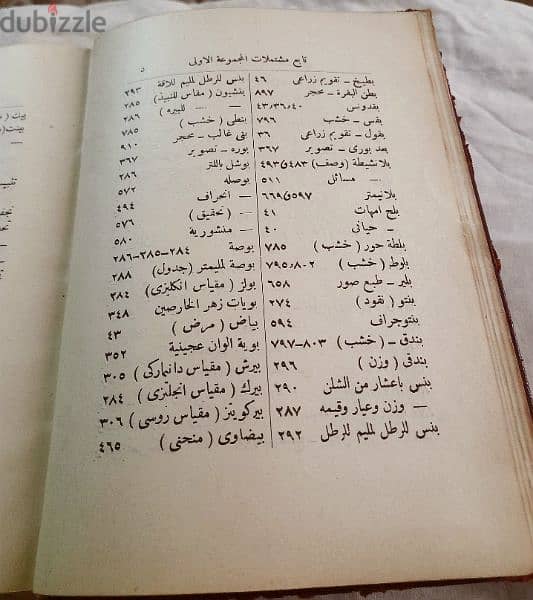 dubizzle
تابع مشتملات المجموعة الاولى
٥
بطيخ – تقويم زراعى ٤٦
بطن البقرة – محجر ٨٩٧
بقدونس ٤٠ر٣٦ر٤٣
بقس – خشب ٧٩٦
بقول – تقويم زراعى ٣٦
بعد بورى – تصوير ٣٦٧
بلانشيطة (وصف) ٤٨٣ق٤٩٣
— مسائل ٥١١
بلانيمتر ٥٩٧و٦٦٩
بلح امهات ٤١
– حيانى ٤٠
بلطة حور ( خشب ) ٧٨٥
بلوط ( خشب ) ٨٠٢ر٧٩٥
بلير – طبع صور ٦٥٨
بنتو ( نقود ) ٢٧٤
بنتوجراف ٥٩٤
بندق – ( خشب ) ٨٠٣–٧٩٧
بندقى ( وزن ) ٢٩٦
بنس باعشار من الشلن ٢٩٠
— وزن وعيار وقيمه ٢٨٧
بنس للرطل لمليم للرطل ٢٩٢
بنس للرطل لمليم للاقة ٢٩٣
بنشيون ( مقاس للنبيذ ) ٢٨٥
— — للبيره ) ٢٨٦
بنطى ( خشب ) ٧٨٥
بنى غالب – محجر ٩١٠
بوره – تصوير ٣٦٧
بوشل باللتر ٢٨٦
بوصله ٥٧٢
— انحراف ٤٩٤
— ( تحقيق ) ٥٧٦
— منشورية ٥٨٠
بوصة ٢٨٤–٢٨٥–٢٨٦
بوصة لمليمتر (جدول) ٢٨٨
بولز ( مقياس انكليزى ) ٢٨٤
بويات زهر الخارصين ٣٤٨
بياض ( مرض ) ٤٣
بوية الوان عجينية ٣٥٢
بيرش ( مقياس دانماركى ) ٣٠٥
بيرك ( مقياس انجلنزى ) ٢٨٤
بيركويتز ( مقياس روسى ) ٣٠٦
بيضاوى ( منحنى ) ٤٦٥